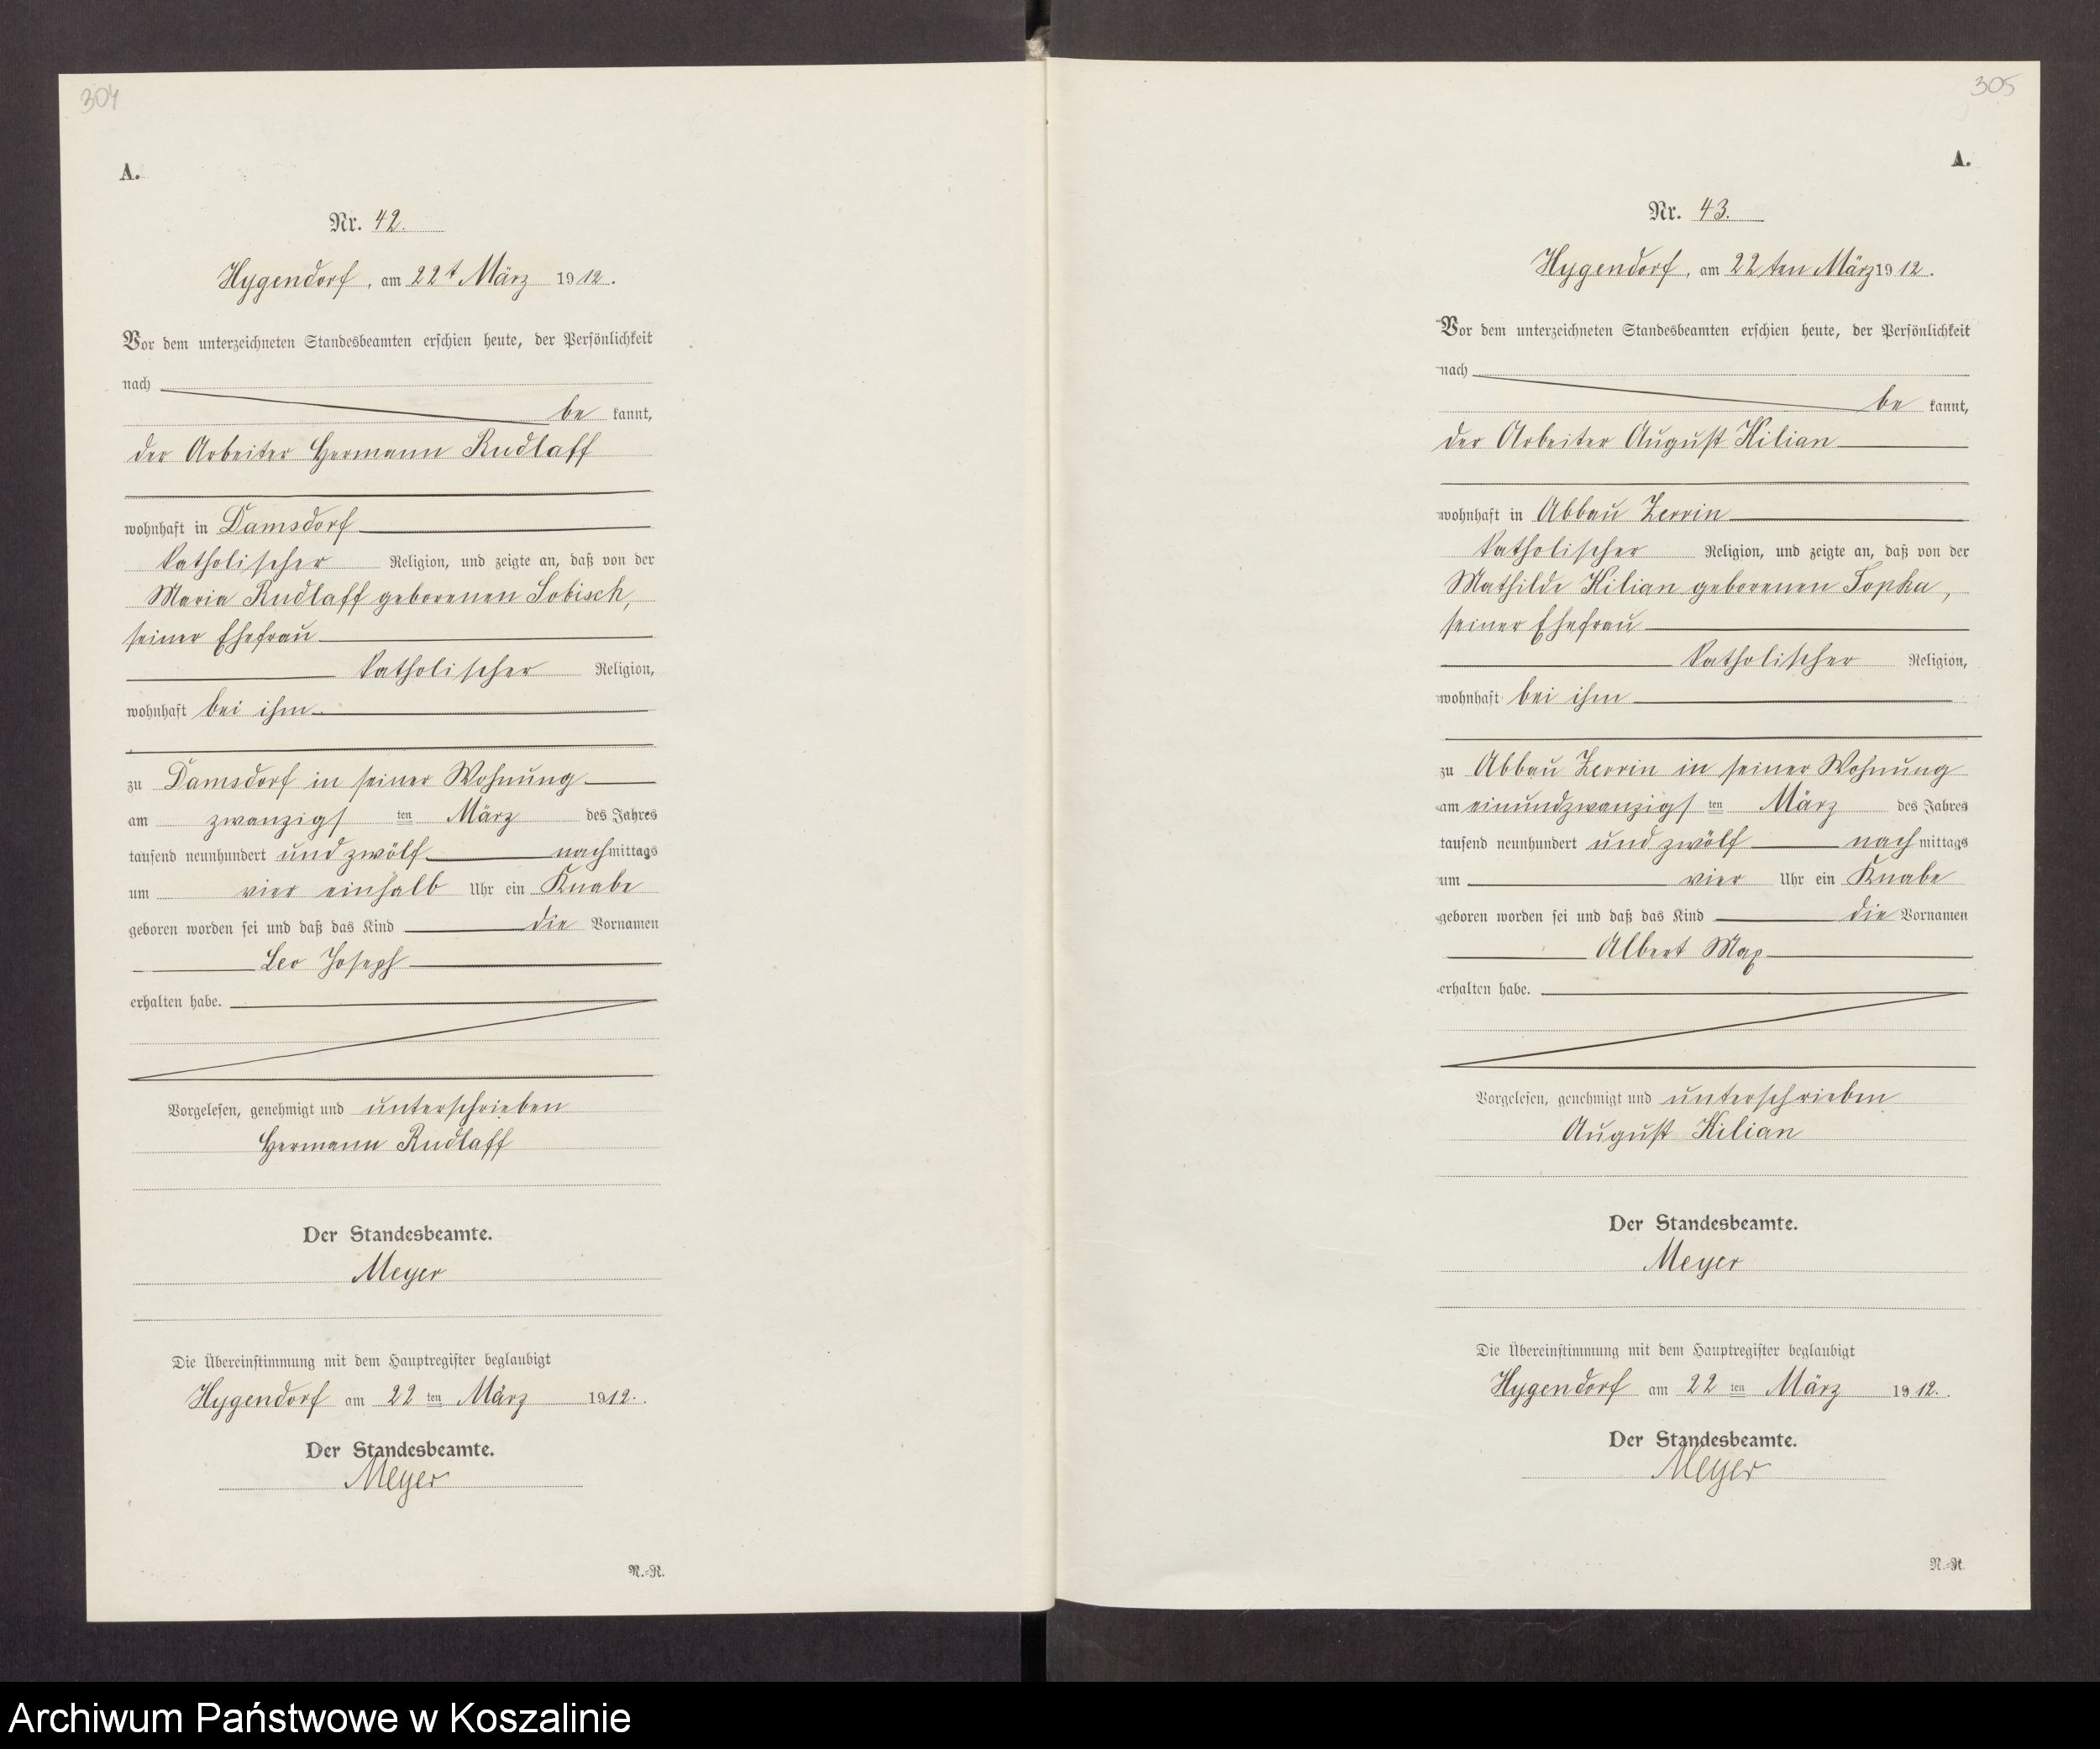 304
A.
Nr. 42.
Hygendorf, am 22t März 1912.
Vor dem unterzeichneten Standesbeamten erschien heute, der Persönlichkeit
nach
be kannt,
der Arbeiter Hermann Rudlaff
wohnhaft in Damsdorf
katholischer Religion, und zeigte an, daß von der
Maria Rudlaff geborenen Sobisch,
seiner Ehefrau
katholischer Religion,
wohnhaft bei ihm
zu Damsdorf in seiner Wohnung
am zwanzigs ten März des Jahres
tausend neunhundert und zwölf nachmittags
um vier einhalb Uhr ein Knabe
geboren worden sei und daß das Kind die Vornamen
Leo Joseph
erhalten habe.
Vorgelesen, genehmigt und unterschrieben
Hermann Rudlaff
Der Standesbeamte.
Meyer
Die Übereinstimmung mit dem Hauptregister beglaubigt
Hygendorf am 22 ten März 1912.
Der Standesbeamte.
Meyer
N.=R.
305
A.
Nr. 43.
Hygendorf, am 22ten März 1912.
Vor dem unterzeichneten Standesbeamten erschien heute, der Persönlichkeit
nach
be kannt,
der Arbeiter August Kilian
wohnhaft in Abbau Zerrin
katholischer Religion, und zeigte an, daß von der
Mathilde Kilian geborenen Sopka,
seiner Ehefrau
katholischer Religion,
wohnhaft bei ihm
zu Abbau Zerrin in seiner Wohnung
am einundzwanzigs ten März des Jahres
tausend neunhundert und zwölf nachmittags
um vier Uhr ein Knabe
geboren worden sei und daß das Kind die Vornamen
Albert Max
erhalten habe.
Vorgelesen, genehmigt und unterschrieben
August Kilian
Der Standesbeamte.
Meyer
Die Übereinstimmung mit dem Hauptregister beglaubigt
Hygendorf am 22 ten März 1912.
Der Standesbeamte.
Meyer
N.=R.
Archiwum Państwowe w Koszalinie